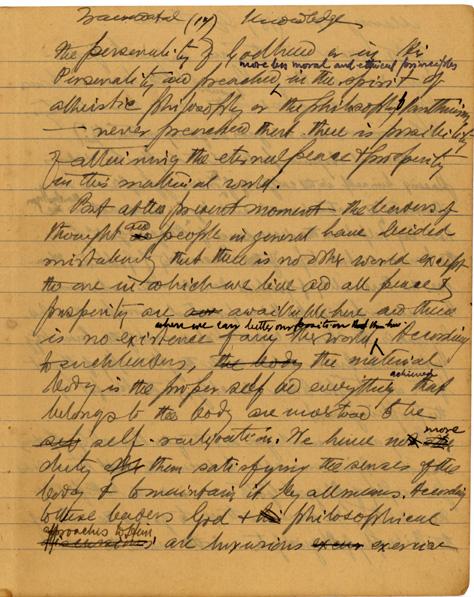 (14) Knowledge
the personality of Godhead or in His
more less moral and ethical principles
Personality and preached in the spirit of
atheistic philosophy or the philosophy of Pantheism
— never preached that there is possibility
of attaining the eternal peace & prosperity
in this material world.
But at the present moment the leaders of
thought and people in general have decided
mistakenly that there is no other world except
the one in which we live and all peace &
prosperity are available here and there
where we can better our position
is no existence of any other world. According
to such leaders, the body the material
achieved
body is the proper self and everything that
belongs to the body are most to be
self self-realization. We have no more
duty than satisfying the senses of the
body & to maintain it by all means. According
to these leaders God & philosophical
approaches to Him
are luxurious exercise